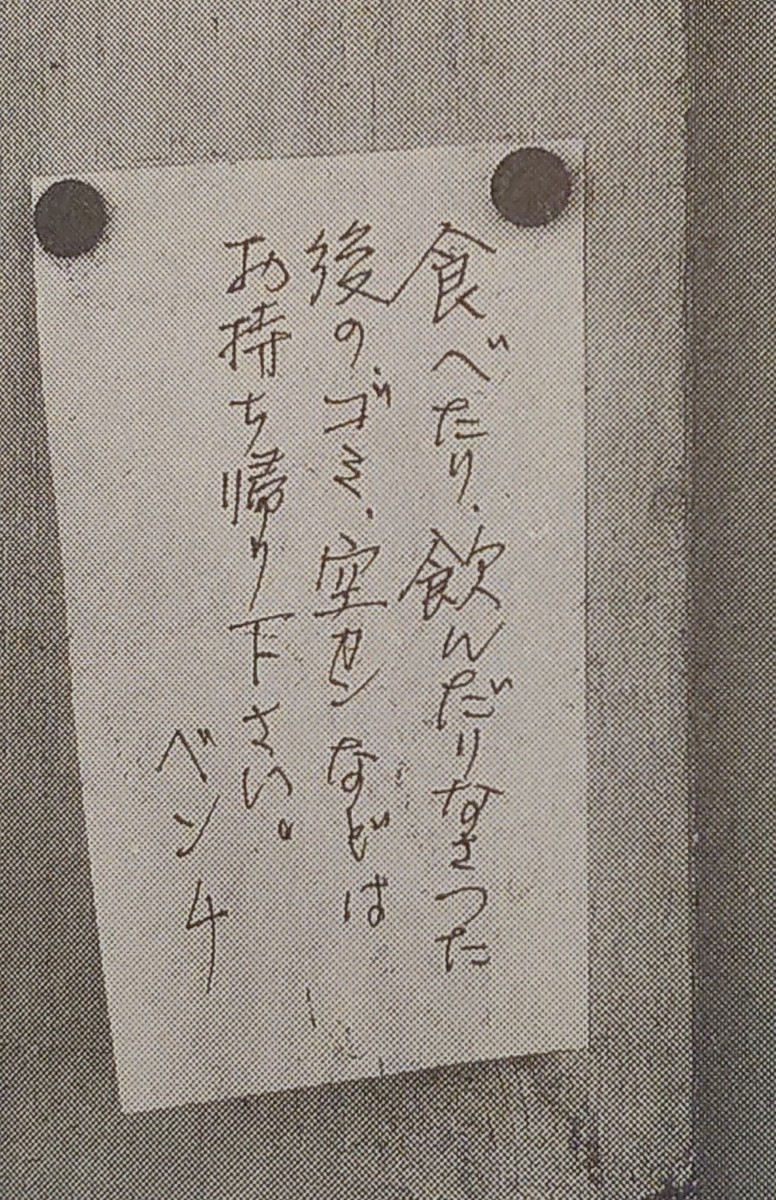 食べたり、飲んだりなさつた
後のゴミ、空カンなどは
お持ち帰り下さい。
ベンチ